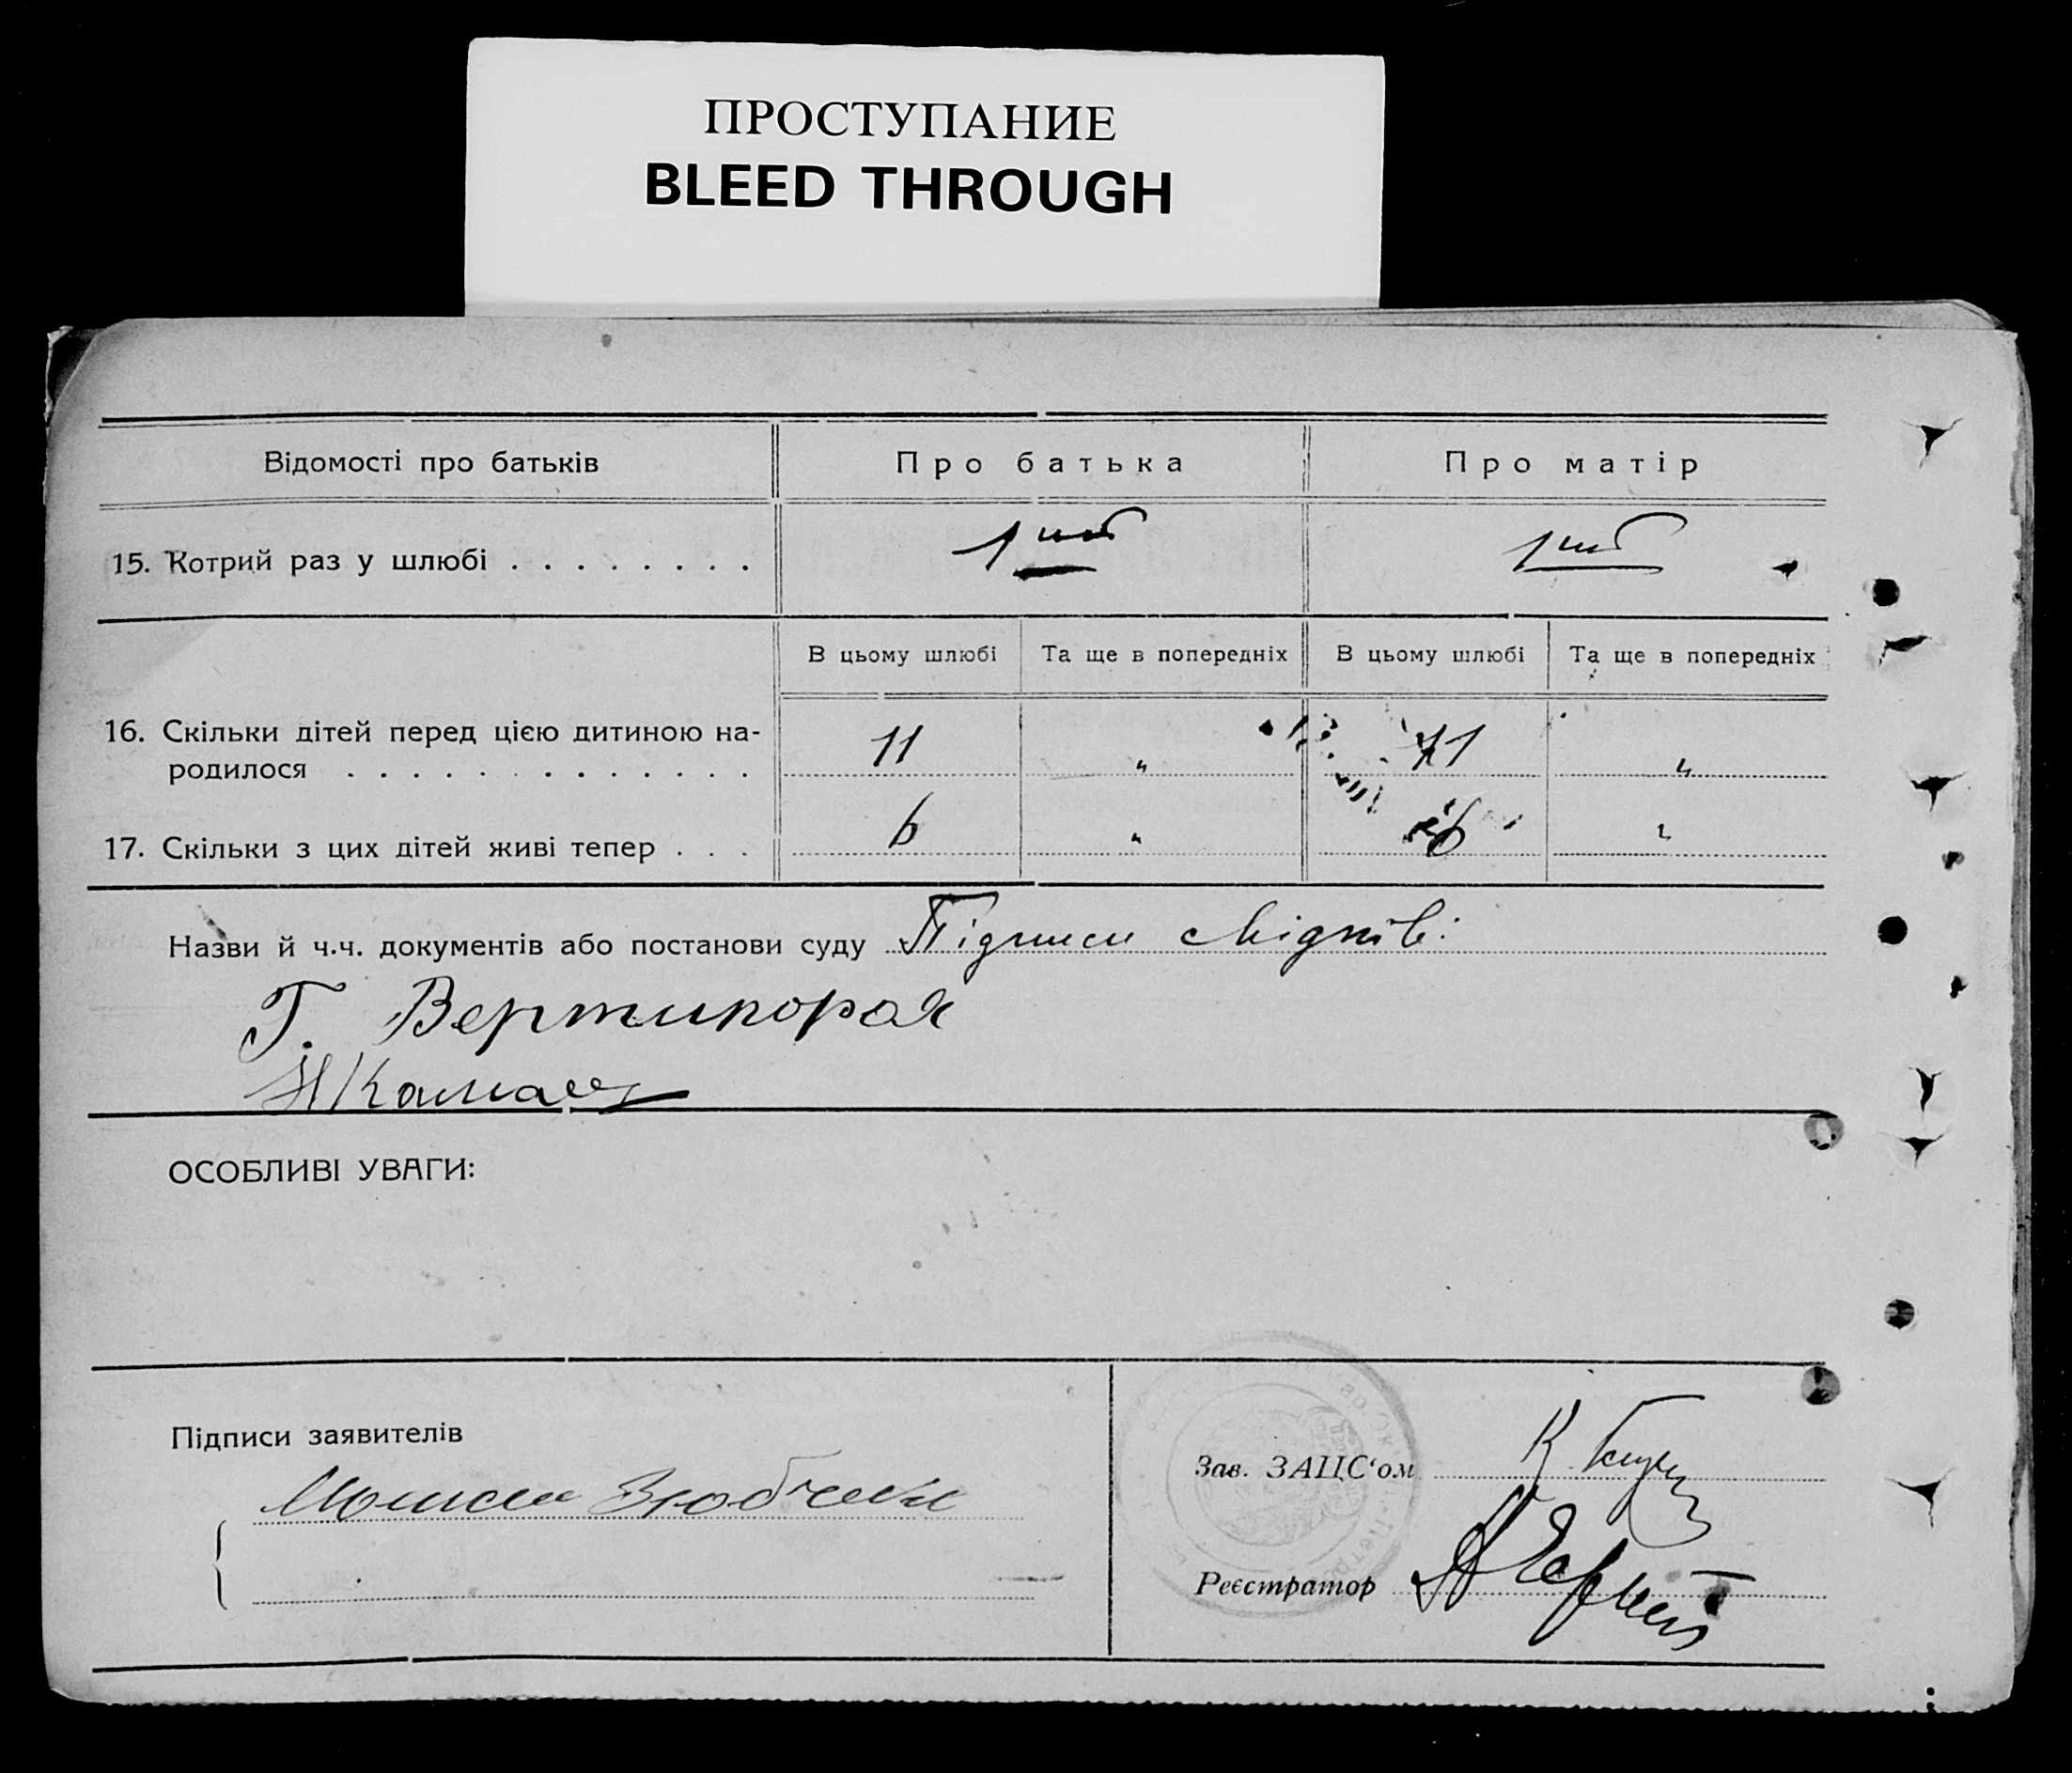 ПРОСТУПАНИЕ
BLEED THROUGH
Відомості про батьків Про батька Про матір
15. Котрий раз у шлюбі . . . . . . . . 1ший 1ший
В цьому шлюбі Та ще в попередніх В цьому шлюбі Та ще в попередніх
16. Скільки дітей перед цією дитиною на- 11 " 11 "
родилося . . . . . . . . . . . . .
17. Скільки з цих дітей живі тепер . . . 6 " 6 "
Назви й ч.ч. документів або постанови суду Підписи свідків:
Г. Вертипорох
ОСОБЛИВІ УВАГИ:
Підписи заявителів
Зав. ЗАЦС‘ом
Реєстратор